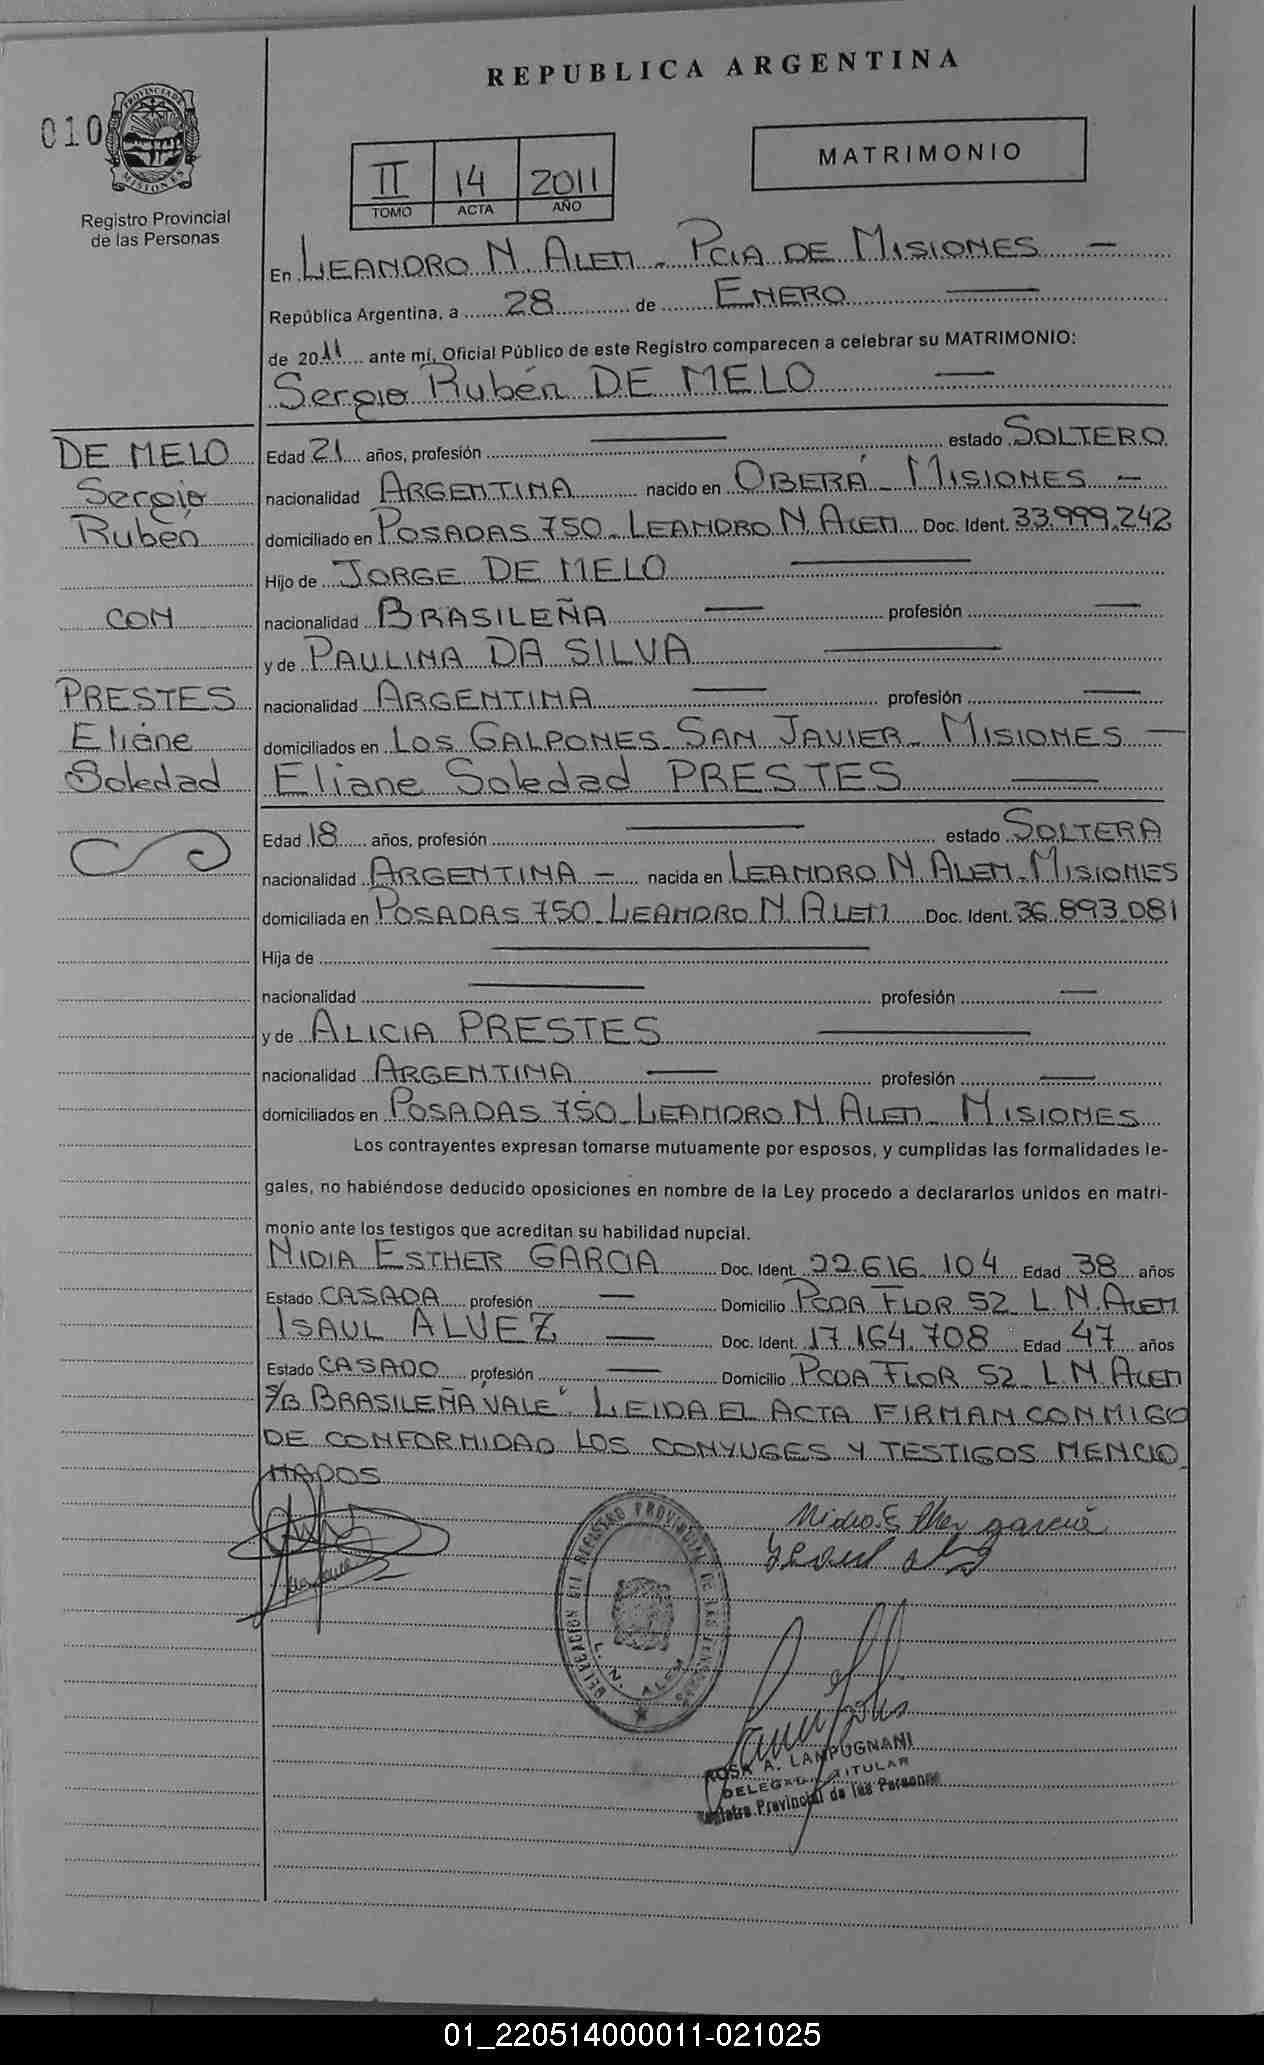 REPUBLICA ARGENTINA
010
PROVINCIA DE
MISIONES
Registro Provincial
de las Personas
II 14 2011
TOMO ACTA AÑO
MATRIMONIO
En LEANDRO N. ALEM - PCIA DE MISIONES —
República Argentina, a 28 de ENERO —
de 2011 ante mí, Oficial Público de este Registro comparecen a celebrar su MATRIMONIO:
Sergio Rubén DE MELO —
DE MELO
Sergio
Rubén
CON
PRESTES
Eliane
Soledad
Edad 21 años, profesión — estado SOLTERO
nacionalidad ARGENTINA nacido en OBERÁ - MISIONES —
domiciliado en POSADAS 750 - LEANDRO N. ALEM Doc. Ident. 33.999.242
Hijo de JORGE DE MELO —
nacionalidad BRASILEÑA — profesión —
y de PAULINA DA SILVA —
nacionalidad ARGENTINA — profesión —
domiciliados en LOS GALPONES - SAN JAVIER - MISIONES —
Eliane Soledad PRESTES —
Edad 18 años, profesión — estado SOLTERA
nacionalidad ARGENTINA — nacida en LEANDRO N. ALEM - MISIONES
domiciliada en POSADAS 750 - LEANDRO N. ALEM Doc. Ident. 36.893.081
Hija de —
nacionalidad — profesión —
y de ALICIA PRESTES —
nacionalidad ARGENTINA — profesión —
domiciliados en POSADAS 750 - LEANDRO N. ALEM - MISIONES
Los contrayentes expresan tomarse mutuamente por esposos, y cumplidas las formalidades le-
gales, no habiéndose deducido oposiciones en nombre de la Ley procedo a declararlos unidos en matri-
monio ante los testigos que acreditan su habilidad nupcial.
NIDIA ESTHER GARCIA Doc. Ident. 22.616.104 Edad 38 años
Estado CASADA profesión — Domicilio PCDA FLOR 52 - L. N. ALEM
ISAUL ALVEZ — Doc. Ident. 17.164.708 Edad 47 años
Estado CASADO profesión — Domicilio PCDA FLOR 52 - L. N. ALEM
S/B BRASILEÑA "VALE". LEIDA EL ACTA FIRMAN CONMIGO
DE CONFORMIDAD LOS CONYUGES Y TESTIGOS MENCIO
NADOS
Nidia Esther garcia
DELEGACION DEL REGISTRO PROVINCIAL DE LAS PERSONAS
L. N. ALEM
ROSA A. LAMPUGNANI
DELEGADA TITULAR
Registro Provincial de las Personas
01_220514000011-021025